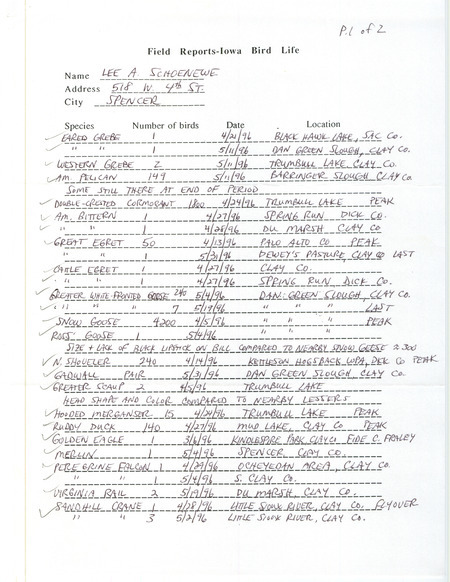 P.1 of 2
Field Reports-Iowa Bird Life
Name LEE A. SCHOENEWE
Address 518 W. 4th ST.
City SPENCER
Species Number of birds Date Location
EARED GREBE 1 4/21/96 BLACK HAWK LAKE, SAC CO.
" " 1 5/11/96 DAN GREEN SLOUGH, CLAY CO.
WESTERN GREBE 2 5/11/96 TRUMBULL LAKE, CLAY CO.
AM. PELICAN 149 5/11/96 BARRINGER SLOUGH CLAY CO
SOME STILL THERE AT END OF PERIOD
DOUBLE-CRESTED CORMORANT 1800 4/24/96 TRUMBULL LAKE PEAK
AM. BITTERN 1 4/27/96 SPRING RUN DICK. CO.
" " 1 4/28/96 DU MARSH CLAY CO
GREAT EGRET 50 4/13/96 PALO ALTO CO PEAK
1 5/31/96 DEWEY'S PASTURE, CLAY CO LAST
CATTLE EGRET 1 4/27/96 CLAY CO.
" " 1 4/27/96 SPRING RUN DICK. CO.
GREATER WHITE-FRONTED GOOSE 240 5/4/96 DAN GREEN SLOUGH, CLAY CO.
" " 7 5/17/96 " " " LAST
SNOW GOOSE 4200 4/5/96 " " " PEAK
ROSS' GOOSE 1 5/4/96 " " "
SIZE + LACK OF BLACK LIPSTICK ON BILL COMPARED TO NEARBY SNOW GEESE
N. SHOVELER 240 4/14/96 KETTLESON HOGSBACK WPA, DCK CO PEAK
GADWALL PAIR 5/31/96 DAN GREEN SLOUGH, CLAY CO.
GREATER SCAUP 2 4/5/96 TRUMBULL LAKE
HEAD SHAPE AND COLOR COMPARED TO NEARBY LESSERS
HOODED MERGANSER 15 4/24/96 TRUMBULL LAKE PEAK
RUDDY DUCK 140 4/27/96 MUD LAKE, CLAY CO PEAK
GOLDEN EAGLE 1 3/6/96 KINDLESPIRE PARK CLAY CO. FIDE C. FRALEY
MERLIN 1 5/4/96 SPENCER CLAY CO.
PEREGRINE FALCON 1 4/29/96 OCHEYEDAN AREA, CLAY CO.
1 5/4/96 S. CLAY CO.
VIRGINIA RAIL 2 5/19/96 DU MARSH, CLAY CO.
SANDHILL CRANE 1 4/28/96 LITTLE SIOUX RIVER, CLAY CO. FLYOVER
" " 3 5/2/96 LITTLE SIOUX RIVER, CLAY CO.